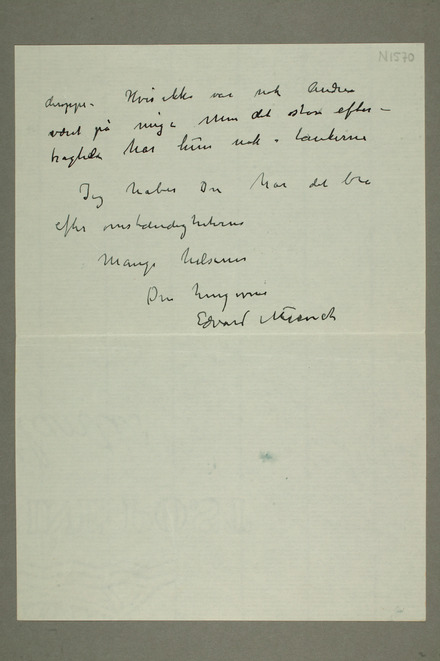 N1570
druppe. Hvis ikke var nok Andrea
vært på mig. Men det store efter-
har hun nok i tankerne
Jeg håber Du har det bra
efter omstændighederne
Mange hilsener
Din hengivne
Edvard Munch